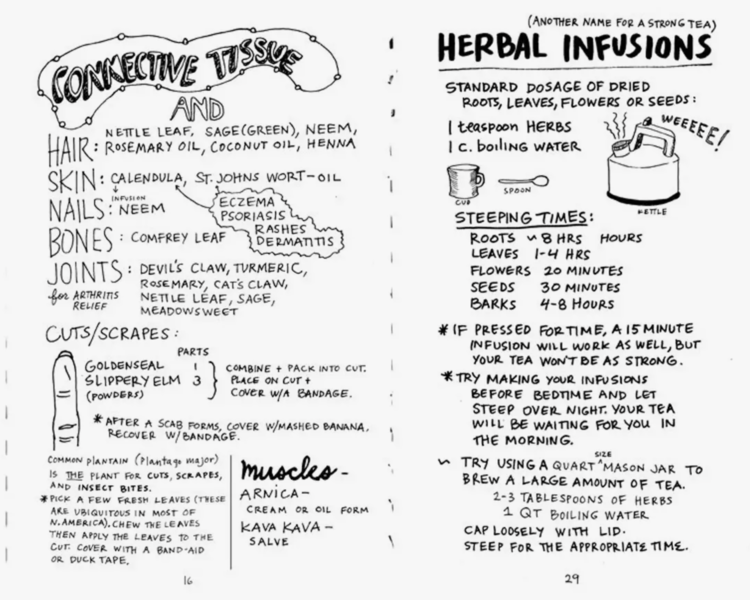 CONNECTIVE TISSUE
AND
HAIR: NETTLE LEAF, SAGE (GREEN), NEEM,
ROSEMARY OIL, COCONUT OIL, HENNA
SKIN: CALENDULA, ST. JOHNS WORT-OIL
INFUSION
NAILS: NEEM
ECZEMA
PSORIASIS
RASHES
DERMATITIS
BONES: COMFREY LEAF
JOINTS: DEVIL'S CLAW, TURMERIC,
for ARTHRITIS RELIEF
ROSEMARY, CAT'S CLAW,
NETTLE LEAF, SAGE,
MEADOWSWEET
CUTS/SCRAPES:
PARTS
GOLDENSEAL 1
SLIPPERY ELM 3
(POWDERS)
COMBINE + PACK INTO CUT.
PLACE ON CUT +
COVER W/A BANDAGE.
*AFTER A SCAB FORMS, COVER W/MASHED BANANA,
RECOVER W/BANDAGE.
COMMON PLANTAIN (Plantago major)
IS THE PLANT FOR CUTS, SCRAPES,
AND INSECT BITES.
*PICK A FEW FRESH LEAVES (THESE
ARE UBIQUITOUS IN MOST OF
N.AMERICA). CHEW THE LEAVES
THEN APPLY THE LEAVES TO THE
CUT. COVER WITH A BAND-AID
OR DUCK TAPE.
muscles-
ARNICA-
CREAM OR OIL FORM
KAVA KAVA-
SALVE
16
(ANOTHER NAME FOR A STRONG TEA)
HERBAL INFUSIONS
STANDARD DOSAGE OF DRIED
ROOTS, LEAVES, FLOWERS OR SEEDS:
1 teaspoon HERBS
1 c. boiling WATER
WEEEEE!
CUP
SPOON
KETTLE
STEEPING TIMES:
ROOTS ~ 8 HRS HOURS
LEAVES 1-4 HRS
FLOWERS 20 MINUTES
SEEDS 30 MINUTES
BARKS 4-8 HOURS
*IF PRESSED FOR TIME, A 15 MINUTE
INFUSION WILL WORK AS WELL, BUT
YOUR TEA WON'T BE AS STRONG.
*TRY MAKING YOUR INFUSIONS
BEFORE BEDTIME AND LET
STEEP OVER NIGHT. YOUR TEA
WILL BE WAITING FOR YOU IN
THE MORNING.
SIZE
~ TRY USING A QUART ^ MASON JAR TO
BREW A LARGE AMOUNT OF TEA.
2-3 TABLESPOONS OF HERBS
1 QT BOILING WATER
CAP LOOSELY WITH LID.
STEEP FOR THE APPROPRIATE TIME.
29